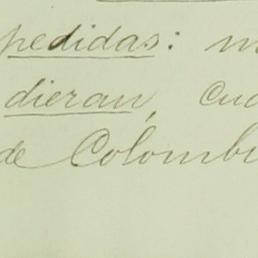 pedidas: m
dieran, cua
de Colombi